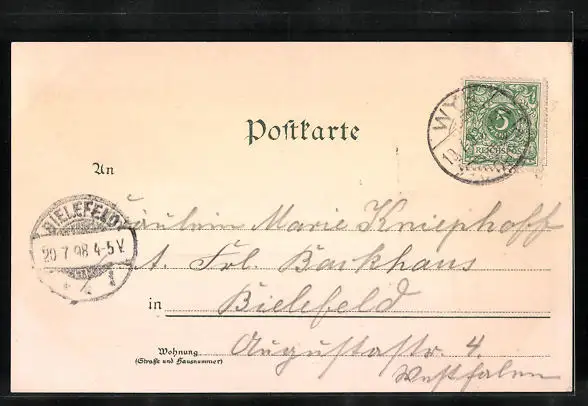 Postkarte
WY
5
REICHSPOST
An
BIELEFELD
20 7.98 4-5 V.
1
Fräulein Marie Kniephoff
A. Frl. Backhaus
in Bielefeld
Wohnung Augustastr. 4.
(Straße und Hausnummer)
Westfalen